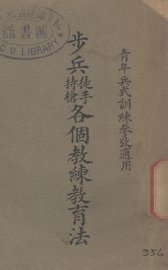 青年兵式訓練參攷適用
步兵徒手持槍各個教練教育法
圖書館
LIBRARY
356